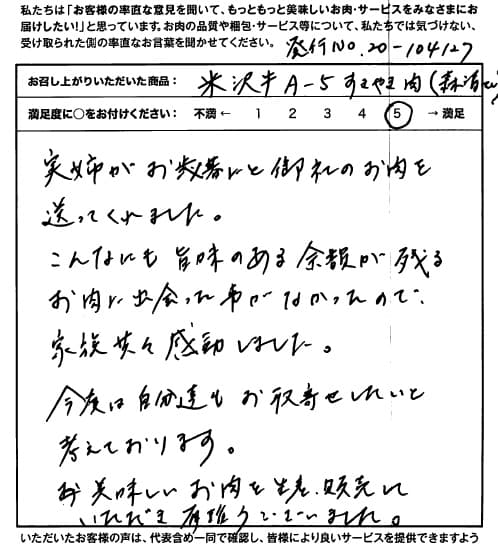 私たちは「お客様の率直な意見を聞いて、もっともっと美味しいお肉・サービスをみなさまにお
届けしたい!」と思っています。お肉の品質や梱包・サービス等について、私たちでは気づけない、
受け取られた側の率直なお言葉を聞かせてください。 発行No.20-104127
お召し上がりいただいた商品: 米沢牛A-5すきやき肉(
満足度に○をお付けください: 不満 ← 1 2 3 4 5 → 満足
実姉がお歳暮にと御礼のお肉を
送ってくれました。
こんなにも旨味のある余韻が残る
お肉に出会った事がなかったので、
家族共々感動しました。
今度は自分達もお取寄せしたいと
考えております。
美味しいお肉を生産、販売して
いただき有難うございました。
いただいたお客様の声は、代表含め一同で確認し、皆様により良いサービスを提供できますよう